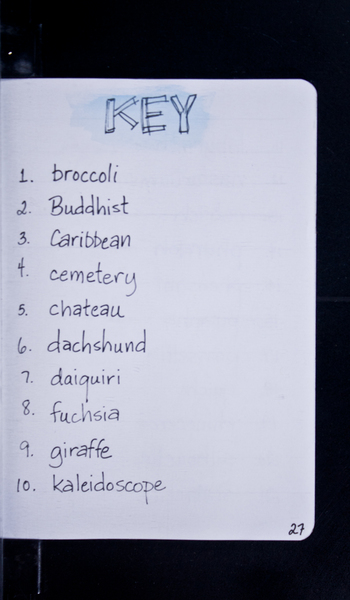 KEY
1. broccoli
2. Buddhist
3. Caribbean
4. cemetery
5. chateau
6. dachshund
7. daiquiri
8. fuchsia
9. giraffe
10. kaleidoscope
27